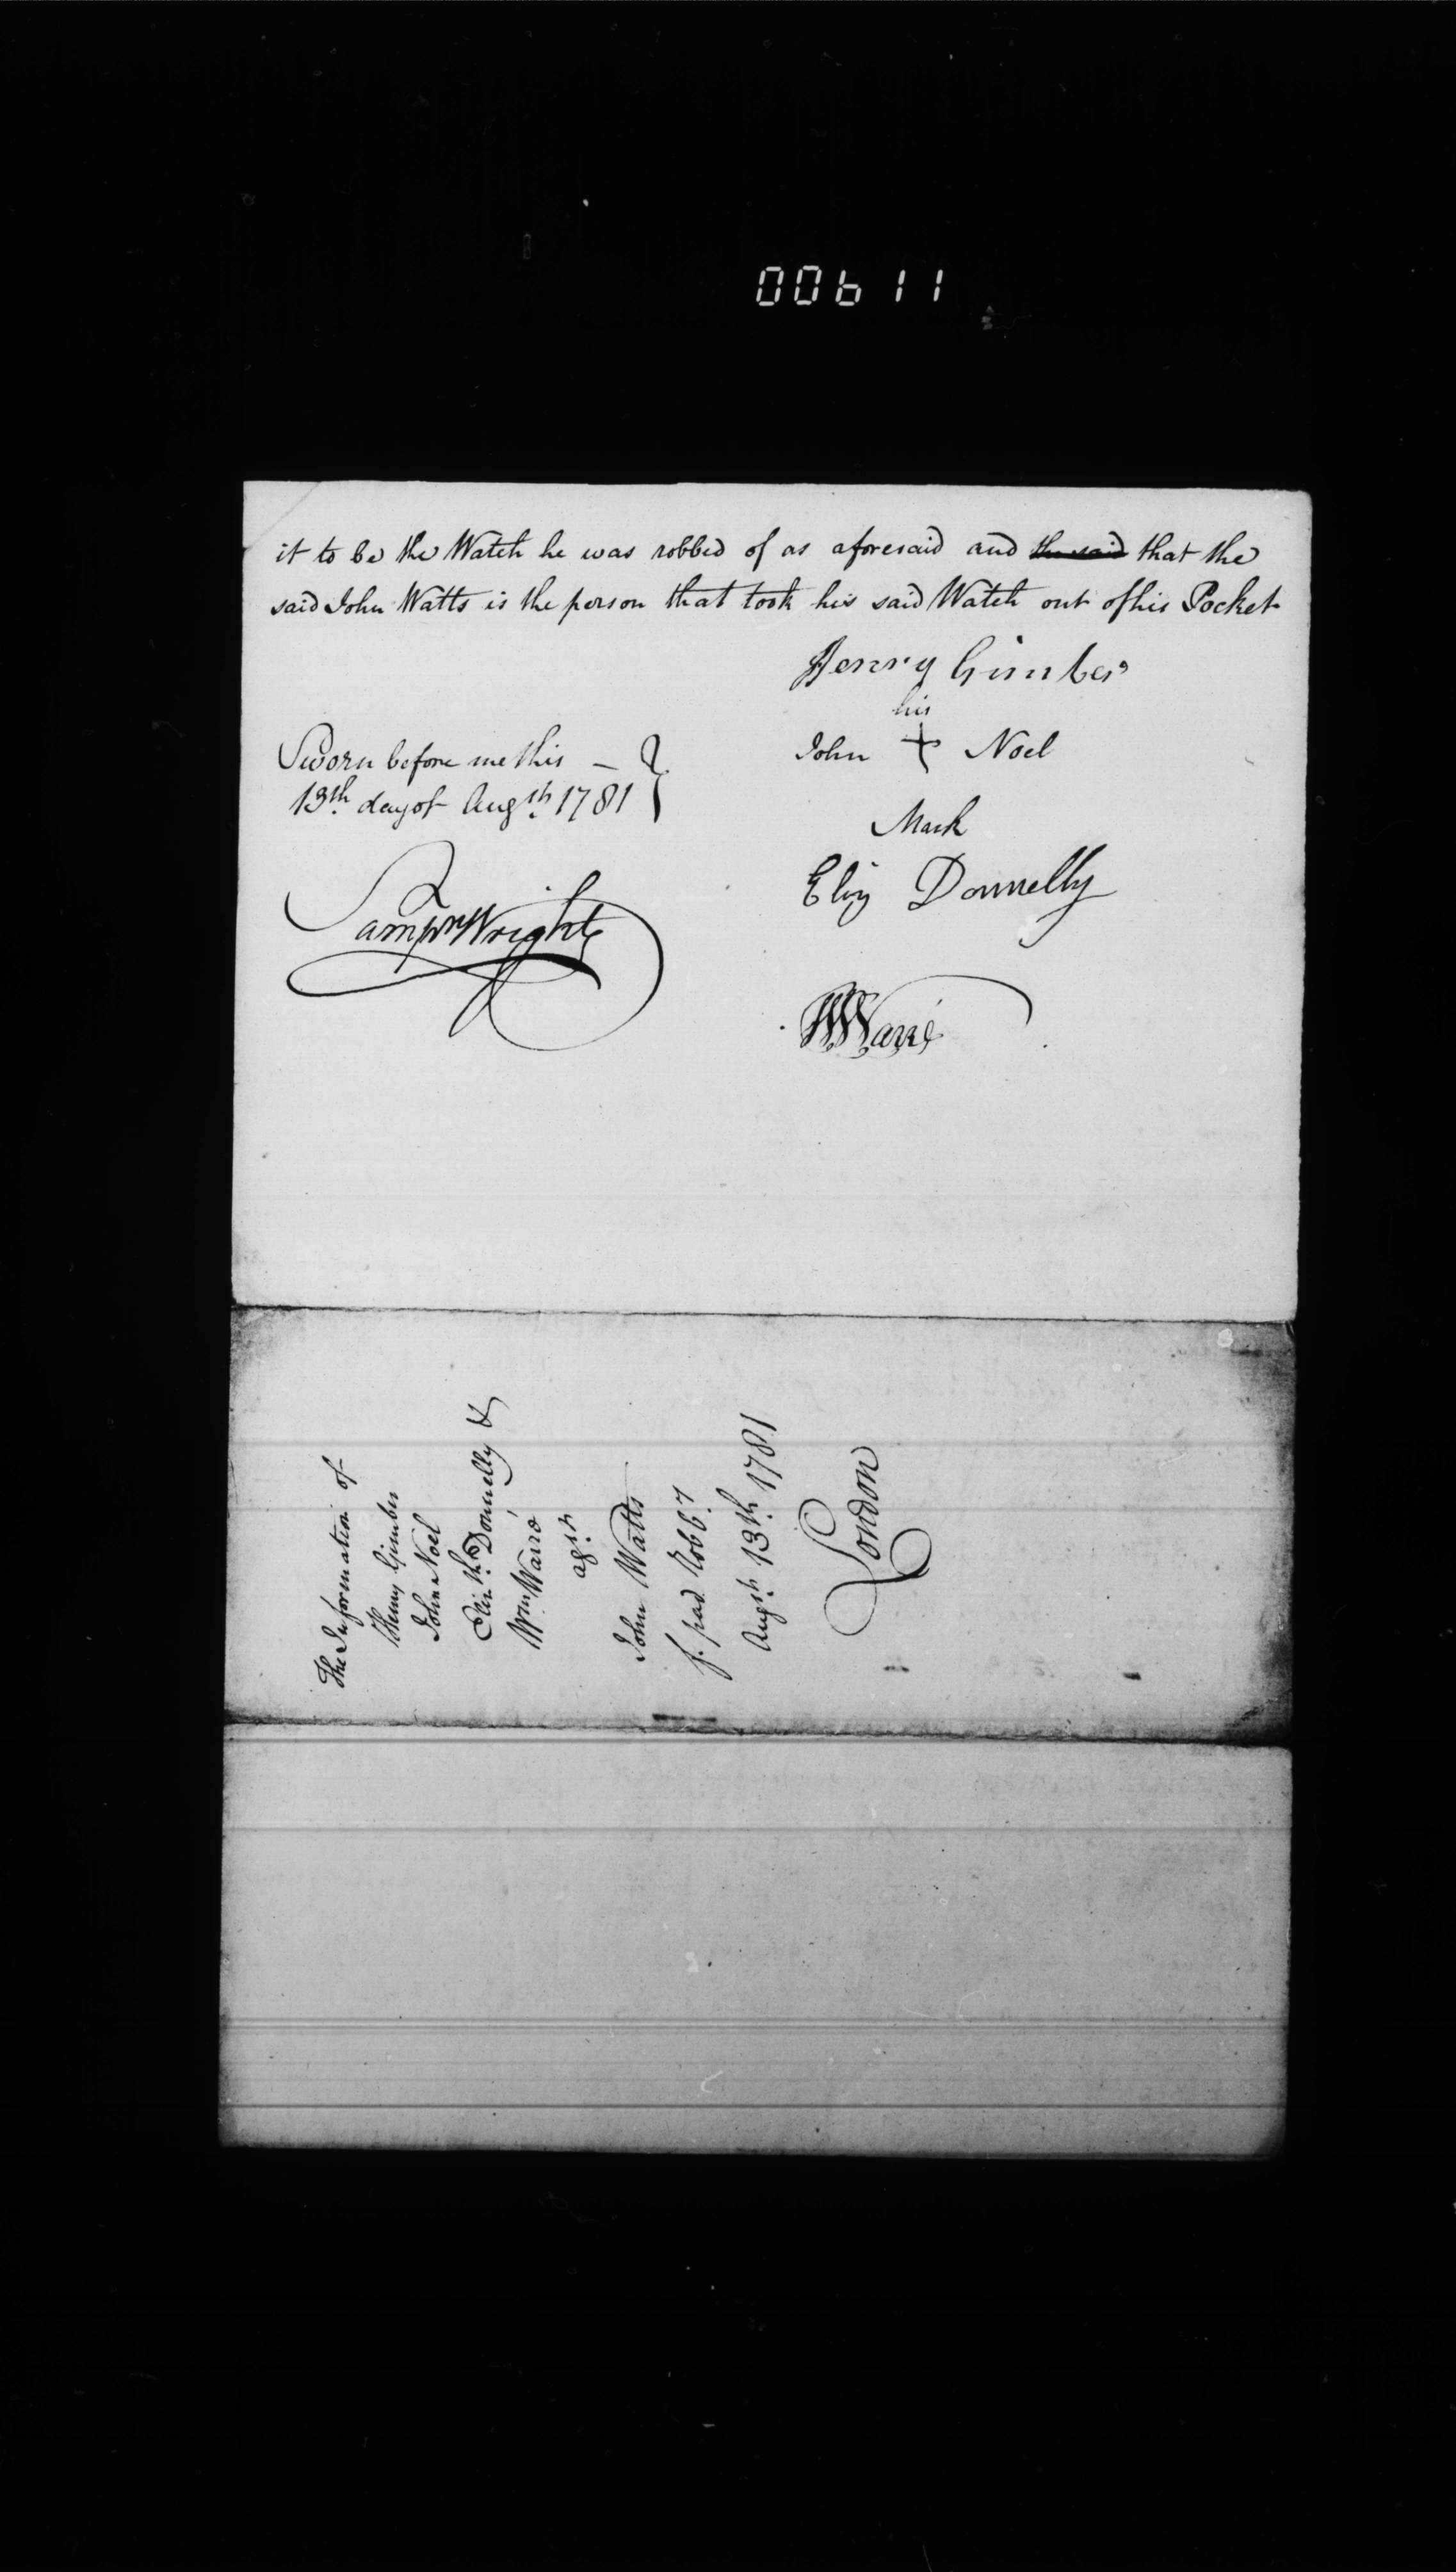 00611
it to be the Watch he was robbed of as aforesaid and the said that the
said John Watts is the person that took his said Watch out of his Pocket
Henry Gimber
his
John + Noel
Mark
Sworn before me this —
13th. day of Augst. 1781
Eliz Donnelly
Sampn Wright
WWarré
The Information of
Henry Gimber
John Noel
Elizth. Donnelly &
Wm. Warré
agst.
John Watts
f. pad Robby.
Augst. 13th. 1781
London